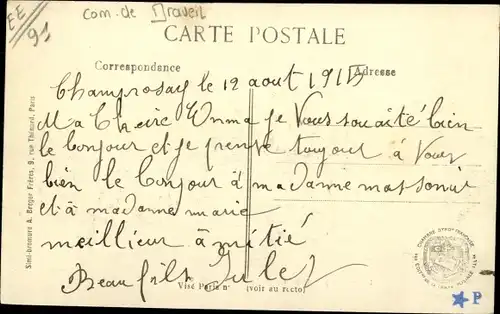 EE
91
com. de Draveil
CARTE POSTALE
Correspondance
Adresse
Champrosay le 12 aout 191
Ma Cheire Emma je Vous souaité bien
le bonjour et je pense toujour à Vous
bien le bonjour à madamme massonui
et à madamme marie
meillieur amitié
Beau fils Jules
Visé Paris n° (voir au recto)
Simi-bromure A. Breger Frères, 9, rue Thénard, Paris
P